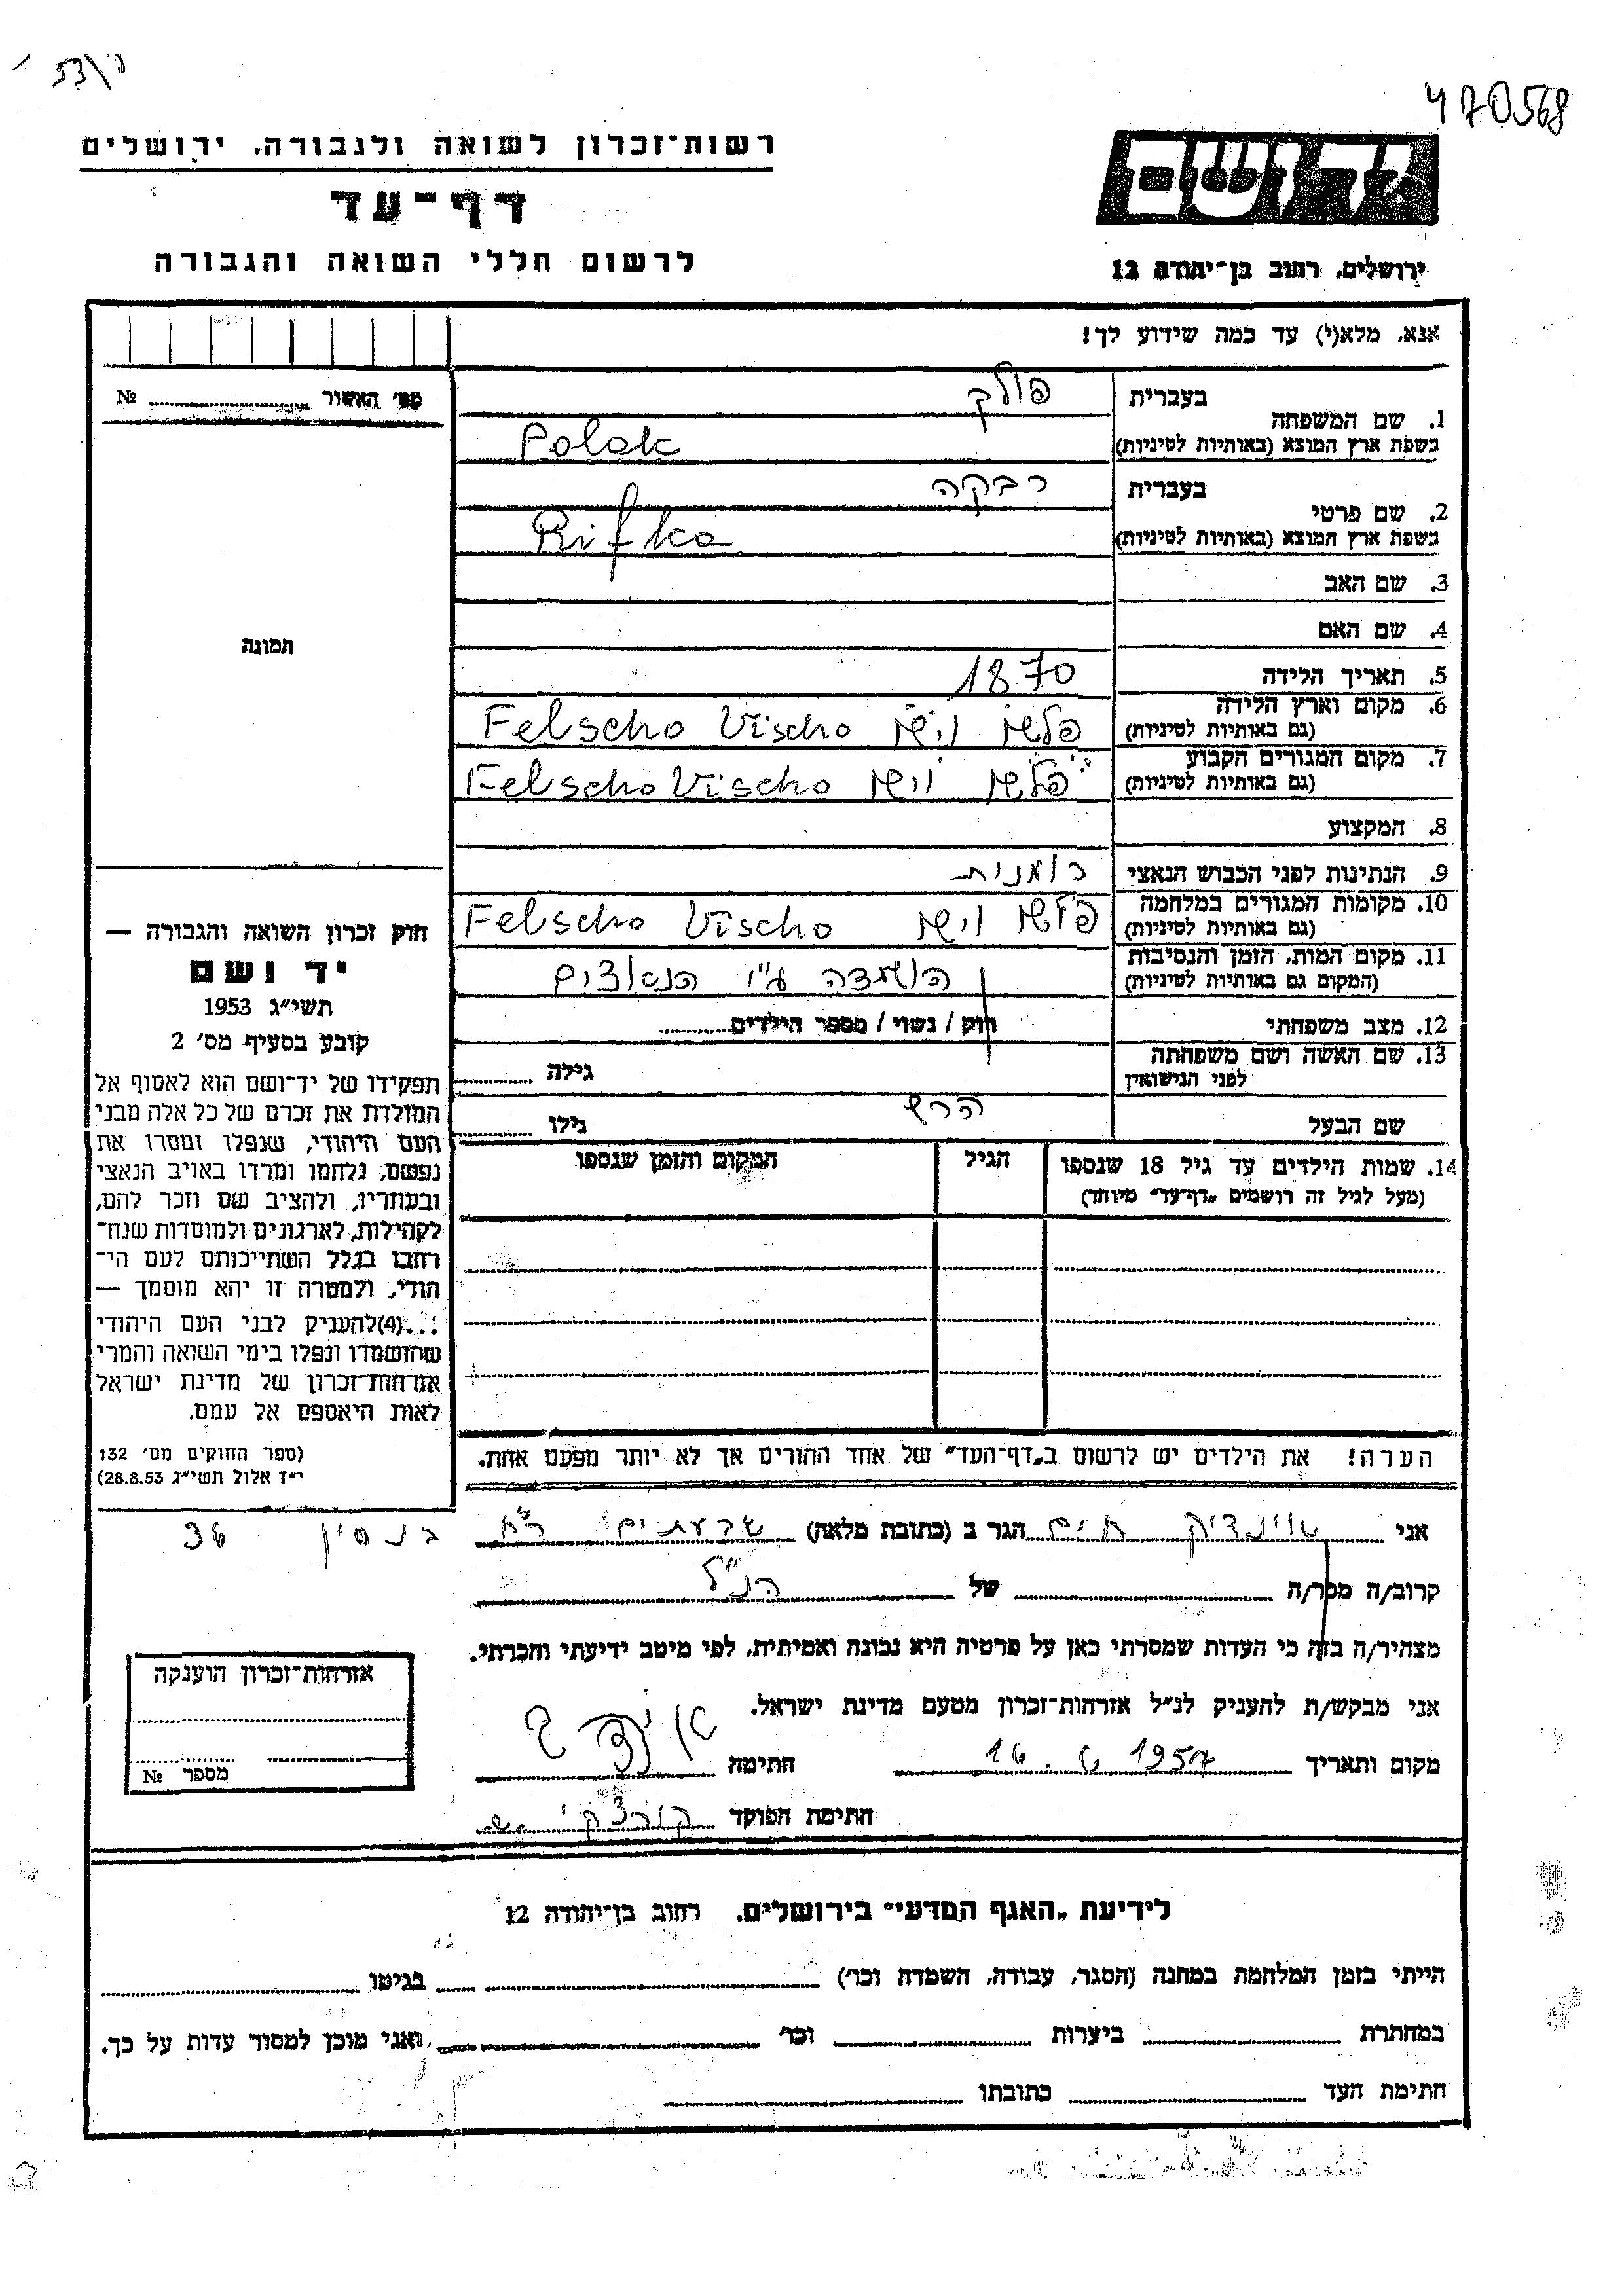 נ\53
470568
רשות־זכרון לשואה ולגבורה, ירושלים
דף־עד
לרשום חללי השואה והגבורה
ידושם
ירושלים, רחוב בן־יהודה 12
אנא, מלא(י) עד כמה שידוע לך!
מס׳ האשור № 
1. שם המשפחה
בעברית פולק
בשפת ארץ המוצא (באותיות לטיניות) Polak
2. שם פרטי
בעברית רבקה
בשפת ארץ המוצא (באותיות לטיניות) Rifka
3. שם האב
4. שם האם
5. תאריך הלידה 1870
6. מקום וארץ הלידה
(גם באותיות לטיניות) פלשו וישו Felscho Vischo
7. מקום המגורים הקבוע
(גם באותיות לטיניות) פלשו וישו Felscho Vischo
8. המקצוע
9. הנתינות לפני הכבוש הנאצי רומנית
10. מקומות המגורים במלחמה
(גם באותיות לטיניות) פלשו וישו Felscho Vischo
11. מקום המות, הזמן והנסיבות
(המקום גם באותיות לטיניות) הושמדה ע״י הנאצים
12. מצב משפחתי רוק / נשוי / מספר הילדים
13. שם האשה ושם משפחתה
לפני הנישואין גילה
שם הבעל הרש גילו
14. שמות הילדים עד גיל 18 שנספו
(מעל לגיל זה רושמים „דף־עד״ מיוחד)
הגיל
המקום והזמן שנספו
הערה! את הילדים יש לרשום ב„דף־העד״ של אחד ההורים אך לא יותר מפעם אחת.
תמונה
חוק זכרון השואה והגבורה —
יד ושם
תשי״ג 1953
קובע בסעיף מס׳ 2
תפקידו של יד־ושם הוא לאסוף אל
המולדת את זכרם של כל אלה מבני
העם היהודי, שנפלו ומסרו את
נפשם, נלחמו ומרדו באויב הנאצי
ובעוזריו, ולהציב שם וזכר להם,
לקהילות, לארגונים ולמוסדות שנח־
רבו בגלל השתייכותם לעם הי־
הודי, ולמטרה זו יהא מוסמך —
...(4)להעניק לבני העם היהודי
שהושמדו ונפלו בימי השואה והמרי
אזרחות־זכרון של מדינת ישראל
לאות היאספם אל עמם.
(ספר החוקים מס׳ 132
י״ז אלול תשי״ג 28.8.53)
אני חיים הגר ב (כתובת מלאה) 36
קרוב/ה מכר/ה של הנ״ל
מצהיר/ה בזה כי העדות שמסרתי כאן על פרטיה היא נכונה ואמיתית, לפי מיטב ידיעתי והכרתי.
אני מבקש/ת להעניק לנ״ל אזרחות־זכרון מטעם מדינת ישראל.
מקום ותאריך 16. 6 1957 חתימה
חתימת הפוקד
אזרחות־זכרון הוענקה
מספר №
לידיעת „האגף המדעי״ בירושלים, רחוב בן־יהודה 12
הייתי בזמן המלחמה במחנה (הסגר, עבודה, השמדה וכו׳) בגיטו
במחתרת ביערות וכו׳ ואני מוכן למסור עדות על כך.
חתימת העד כתובתו